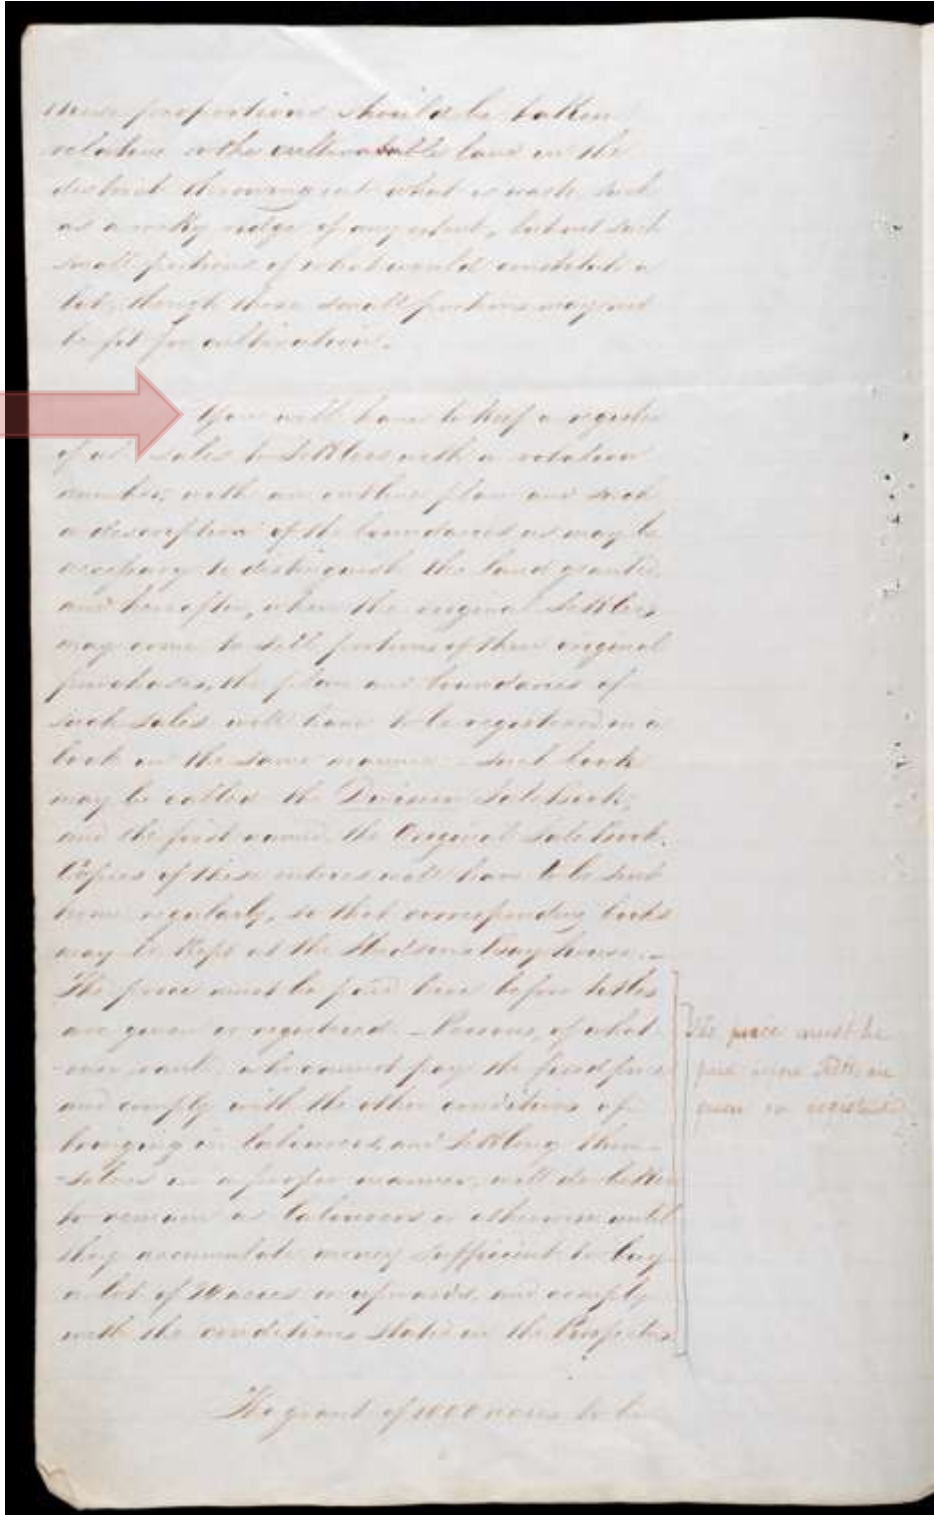 these proportions should be taken
relative to the cultivatable land in the
district throwing out what is waste such
as a rocky ridge of any extent, but not such
small portions of what would constitute a
lot, though those small portions may not
be fit for cultivation.
You will have to keep a register
of all sales to settlers with a rotation
number, with an outline plan and such
a description of the boundaries as may be
necessary to distinguish the land granted
and hereafter, when the original settlers
may come to sell portions of their original
purchases, the plan and boundaries of
such sales will have to be registered in a
book in the same manner - such book
may be called the Division Sale book,
and the first named the Original Sale book.
Copies of these entries will have to be sent
home regularly, so that corresponding books
may be kept at the Hudsons Bay house. -
The price must be paid here before titles
are given or registered - Persons, of what
-ever rank, who cannot pay the fixed price
and comply with the other conditions of
bringing in labourers, and settling them-
-selves in a proper manner, will do better
to remain as labourers or otherwise until
they accumulate money sufficient to buy
a lot of acres or upwards and comply
with the conditions stated in the Prospectus
The price must be
paid before titles are
given or registered
The grant of 1000 acres to be